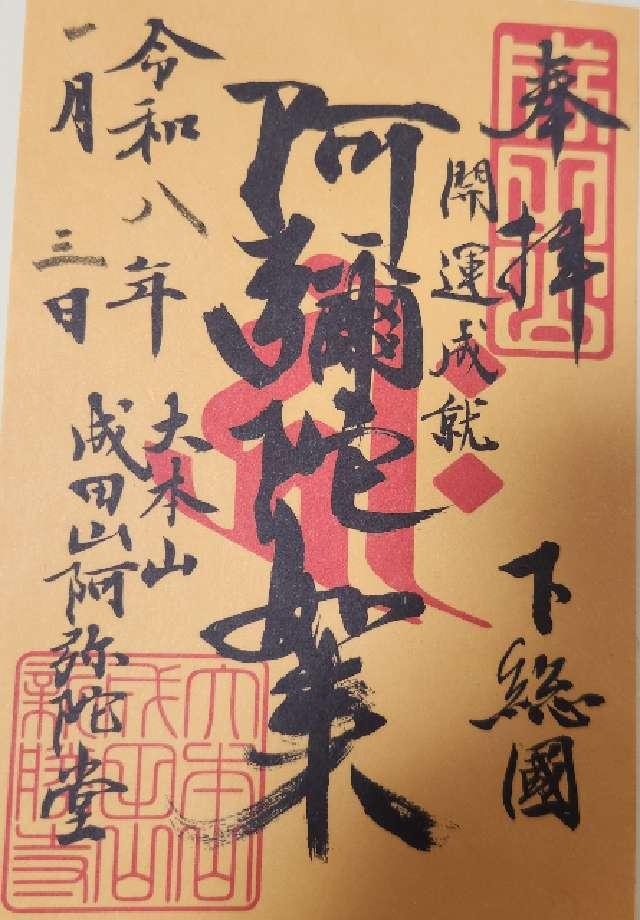 奉拝
開運成就
下総國
阿彌陀如来
令和八年
一月三日
大本山
成田山阿弥陀堂
大本山
成田山
新勝寺